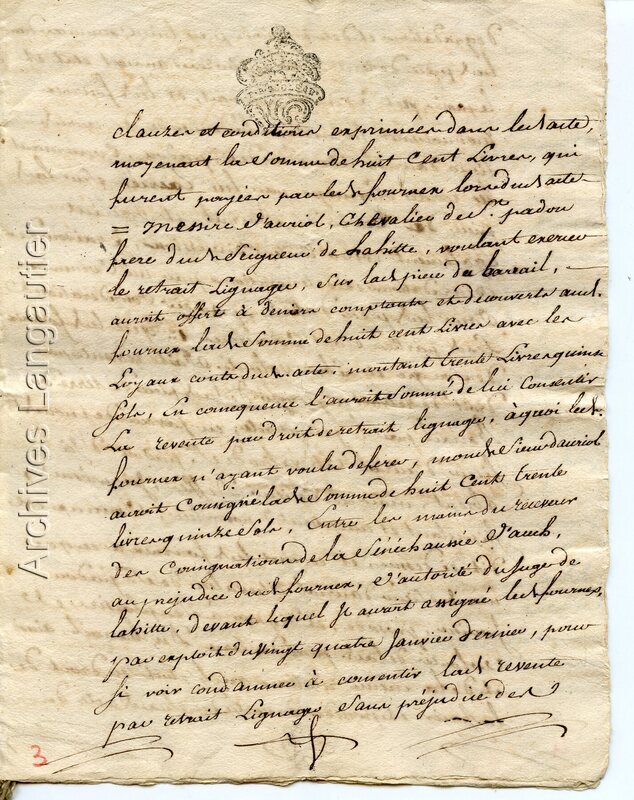 clauzes et conditions exprimées dans led. acte,
moyenant la somme de huit cent Livres, qui
furent payées par led. fournex lors dud. acte
= Messire d'auriol, Chevalier de St. padou
frere dud. Seigneur de Lahitte, voulant exercer
le retrait Lignager, sur lad. piece du bareail,
auroit offert à deniers comptants et découverts aud.
fournex lad. somme de huit cent Livres avec les
Loyaux couts dud. acte, montant trente Livres quinze
sols, En consequence l'auroit sommé de lui consentir
La revente par droit de retrait lignager, à quoi led.
fournex n'ayant voulu deferer, mond. Sieur d'auriol
auroit Consigné lad. somme de huit Cent trente
livres quinze sols, Entre les mains du receveur
des Consignations de la Sénéchaussée d'auch,
au préjudice dud. fournex, d'autorité du Juge de
lahitte, devant lequel Il auroit assigné led. fournex,
par exploit du vingt quatre Janvier dernier, pour
si voir condamner à consentir lad. revente
par retrait Lignager sans préjudice des
3
Archives Langautier